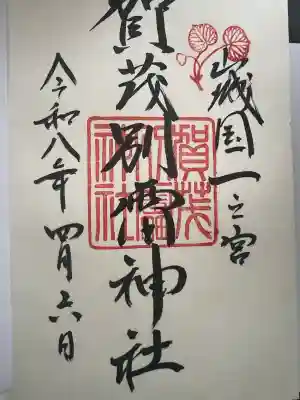 山城国一之宮
賀茂別雷神社
賀茂別雷神社
令和八年四月六日